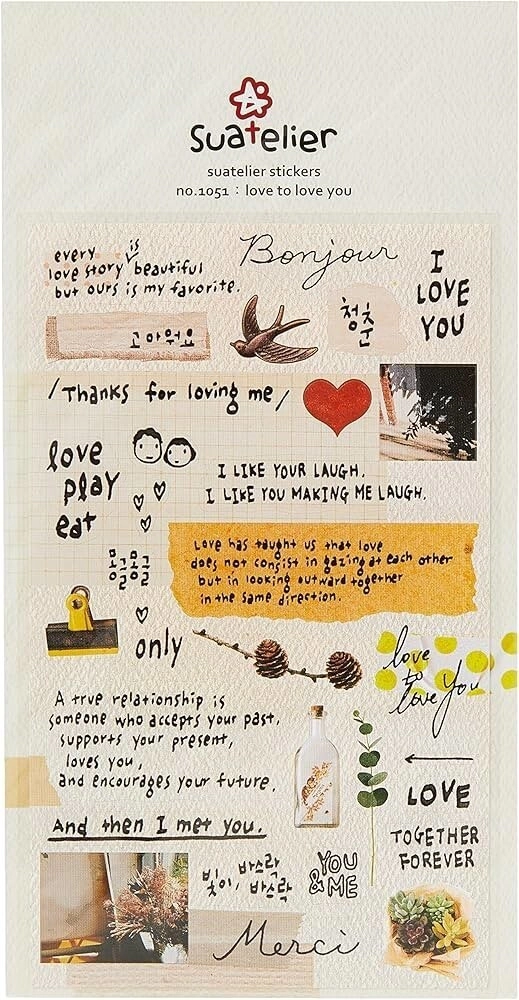 Suatelier
suatelier stickers
no.1051 : love to love you
every is
love story beautiful
but ours is my favorite.
Bonjour
I
LOVE
YOU
고마워요
청
춘
/Thanks for loving me/
love
play
eat
I LIKE YOUR LAUGH.
I LIKE YOU MAKING ME LAUGH.
몽글
몽글
Love has taught us that love
does not consist in gazing at each other
but in looking outward together
in the same direction.
only
love
to
love you
A true relationship is
someone who accepts your past,
supports your present,
loves you,
and encourages your future.
And then I met you.
LOVE
TOGETHER
FOREVER
빛 바스락
빛이, 바스락
YOU
& ME
Merci